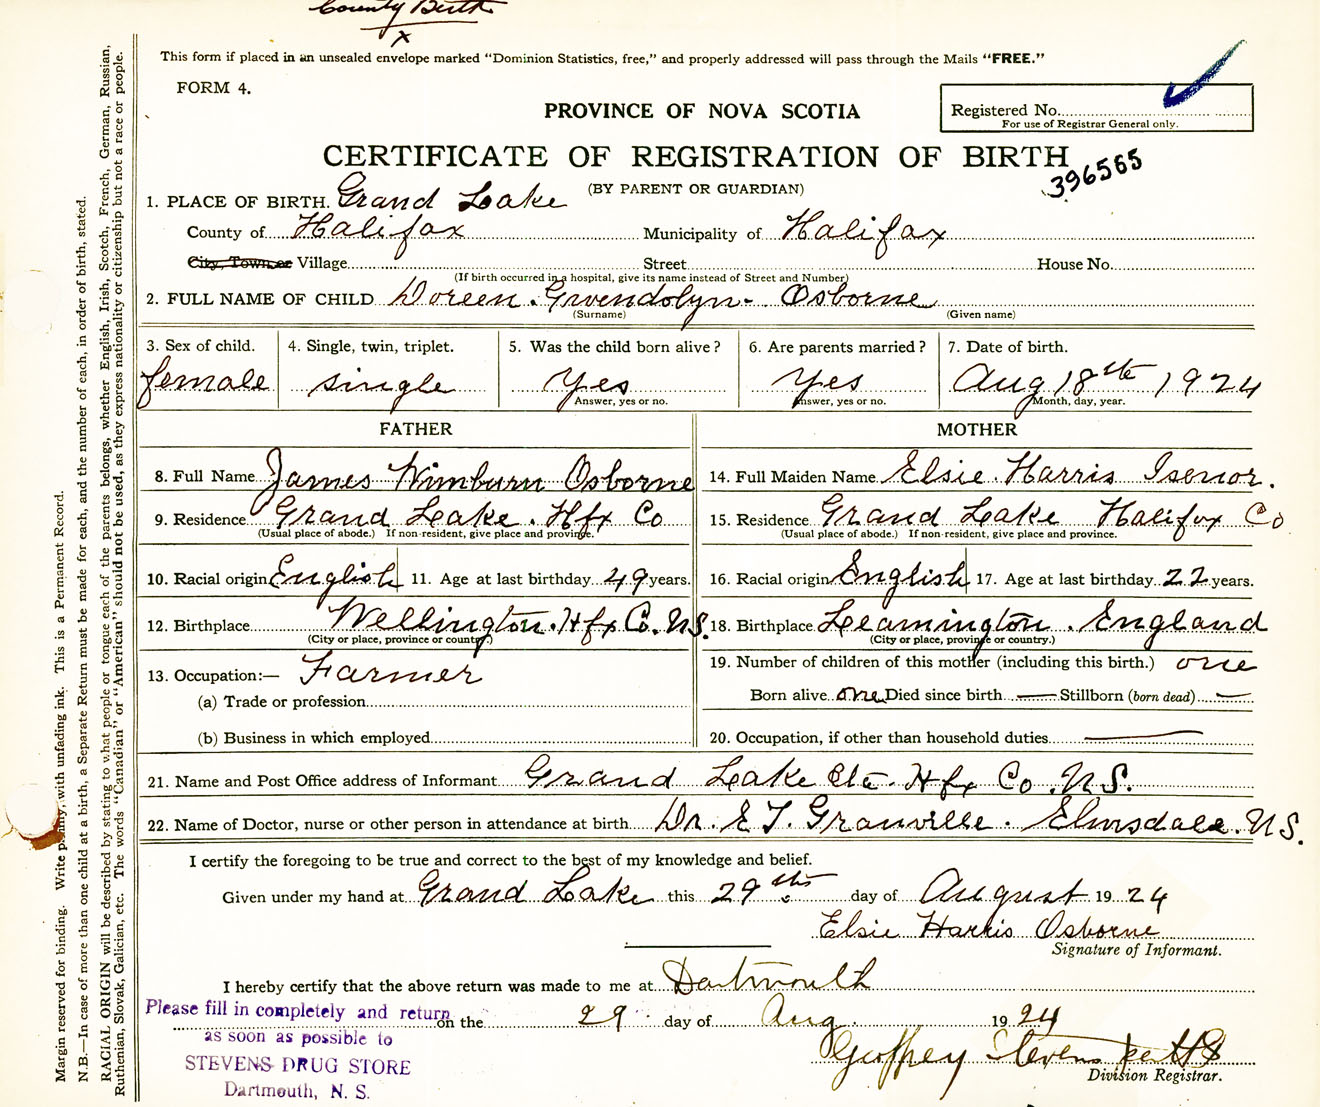 County Birth
x
This form if placed in an unsealed envelope marked "Dominion Statistics, free," and properly addressed will pass through the Mails "FREE."
FORM 4.
PROVINCE OF NOVA SCOTIA
Registered No.
For use of Registrar General only.
CERTIFICATE OF REGISTRATION OF BIRTH
396565
(BY PARENT OR GUARDIAN)
1. PLACE OF BIRTH. Grand Lake
County of Halifax Municipality of Halifax
City, Town or Village Street House No.
(If birth occurred in a hospital, give its name instead of Street and Number)
2. FULL NAME OF CHILD Doreen Gwendolyn - Osborne
(Surname) (Given name)
3. Sex of child. 4. Single, twin, triplet. 5. Was the child born alive? 6. Are parents married? 7. Date of birth.
female single Yes Yes Aug 18th 1924
Answer, yes or no. Answer, yes or no. Month, day, year.
FATHER MOTHER
8. Full Name James Wimburn Osborne 14. Full Maiden Name Elsie Harris Isenor.
9. Residence Grand Lake. Hfx Co 15. Residence Grand Lake Halifax Co
(Usual place of abode.) If non-resident, give place and province. (Usual place of abode.) If non-resident, give place and province.
10. Racial origin English 11. Age at last birthday 49 years. 16. Racial origin English 17. Age at last birthday 22 years.
12. Birthplace Wellington. Hfx Co. N.S. 18. Birthplace Leamington. England
(City or place, province or country.) (City or place, province or country.)
13. Occupation:— Farmer 19. Number of children of this mother (including this birth.) one
(a) Trade or profession Born alive one Died since birth — Stillborn (born dead) —
(b) Business in which employed 20. Occupation, if other than household duties —
21. Name and Post Office address of Informant Grand Lake Hfx Co. N.S.
22. Name of Doctor, nurse or other person in attendance at birth Dr. E T. Granville. Elmsdale. N.S.
I certify the foregoing to be true and correct to the best of my knowledge and belief.
Given under my hand at Grand Lake this 29th day of August 1924
Elsie Harris Osborne
Signature of Informant.
I hereby certify that the above return was made to me at Dartmouth
on the 29 day of Aug. 1924
Geoffrey Stevens
Division Registrar.
Please fill in completely and return
as soon as possible to
STEVENS DRUG STORE
Dartmouth, N. S.
Margin reserved for binding. Write plainly, with unfading ink. This is a Permanent Record.
N.B.—In case of more than one child at a birth, a Separate Return must be made for each, and the number of each, in order of birth, stated.
RACIAL ORIGIN will be described by stating to what people or tongue each of the parents belongs, whether English, Irish, Scotch, French, German, Russian,
Ruthenian, Slovak, Galician, etc. The words "Canadian" or "American" should not be used, as they express nationality or citizenship but not a race or people.